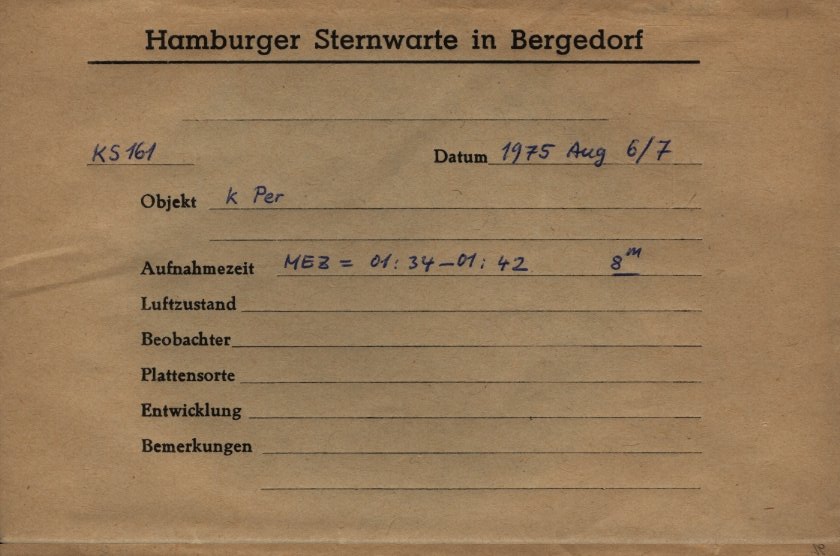 Hamburger Sternwarte in Bergedorf
KS 161 Datum 1975 Aug 6/7
Objekt k Per
Aufnahmezeit MEZ = 01:34–01:42 8ᵐ
Luftzustand
Beobachter
Plattensorte
Entwicklung
Bemerkungen